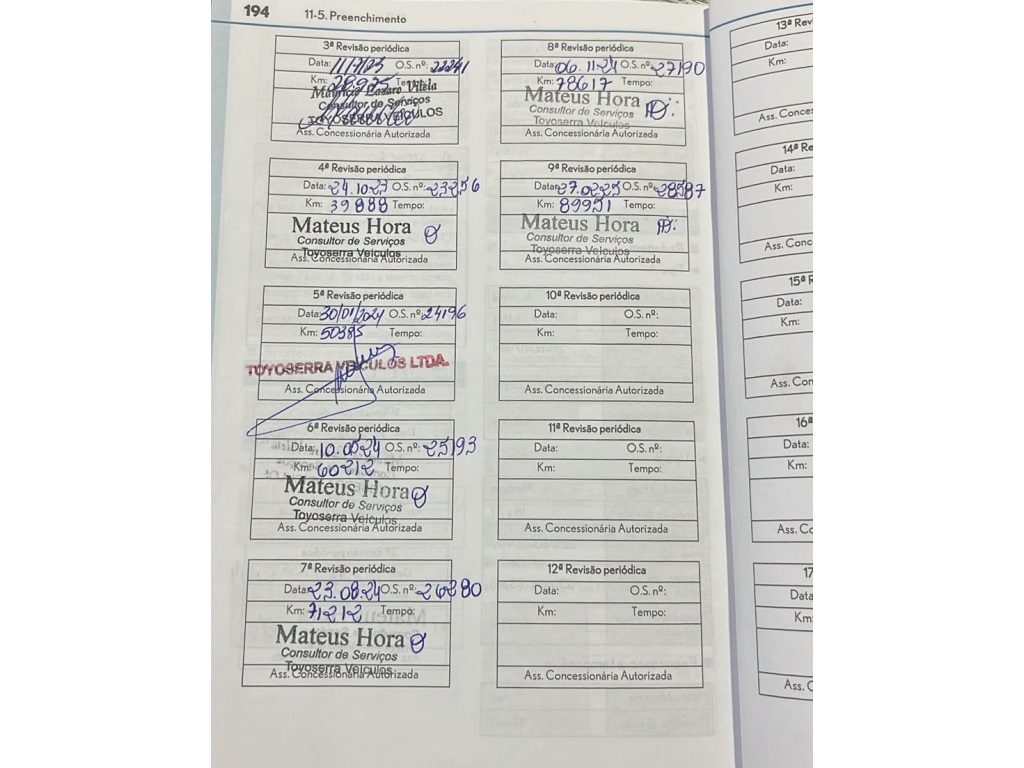 194 11-5. Preenchimento
3ª Revisão periódica
Data: 11/7/23 O.S. nº: 22241
Km: 29925 Tempo:
Mauricio Lazaro Vilela
Consultor de Serviços
TOYOSERRA VEÍCULOS
Ass. Concessionária Autorizada
4ª Revisão periódica
Data: 24.10.23 O.S. nº: 23256
Km: 39888 Tempo:
Mateus Hora
Consultor de Serviços
Toyoserra Veículos
Ass. Concessionária Autorizada
5ª Revisão periódica
Data: 30/01/2024 O.S. nº: 24196
Km: 50385 Tempo:
TOYOSERRA VEICULOS LTDA.
Ass. Concessionária Autorizada
6ª Revisão periódica
Data: 10.05.24 O.S. nº: 25193
Km: 60212 Tempo:
Mateus Hora
Consultor de Serviços
Toyoserra Veículos
Ass. Concessionária Autorizada
7ª Revisão periódica
Data: 23.08.24 O.S. nº: 26280
Km: 71212 Tempo:
Mateus Hora
Consultor de Serviços
Toyoserra Veículos
Ass. Concessionária Autorizada
8ª Revisão periódica
Data: 06.11.24 O.S. nº: 27190
Km: 78617 Tempo:
Mateus Hora
Consultor de Serviços
Toyoserra Veículos
Ass. Concessionária Autorizada
9ª Revisão periódica
Data: 27.02.25 O.S. nº: 28587
Km: 89951 Tempo:
Mateus Hora
Consultor de Serviços
Toyoserra Veículos
Ass. Concessionária Autorizada
10ª Revisão periódica
Data: O.S. nº:
Km: Tempo:
Ass. Concessionária Autorizada
11ª Revisão periódica
Data: O.S. nº:
Km: Tempo:
Ass. Concessionária Autorizada
12ª Revisão periódica
Data: O.S. nº:
Km: Tempo:
Ass. Concessionária Autorizada
13ª Rev
Data:
Km:
Ass. Conces
14ª Re
Data:
Km:
Ass. Conc
15ª R
Data:
Km:
Ass. Con
16ª
Data:
Km:
Ass. Co
17
Data
Km:
Ass. C